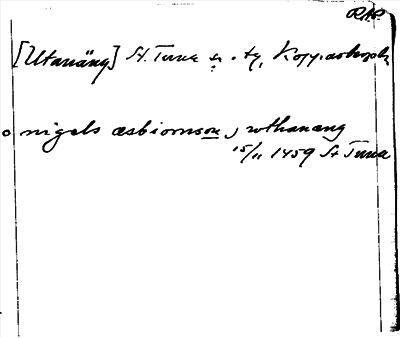 RAP.
[Utanäng] St. Tuna sn. tg, Kopparbergs l.
o nigels æsbiornson j vthanæng
15/11 1459 St Tuna